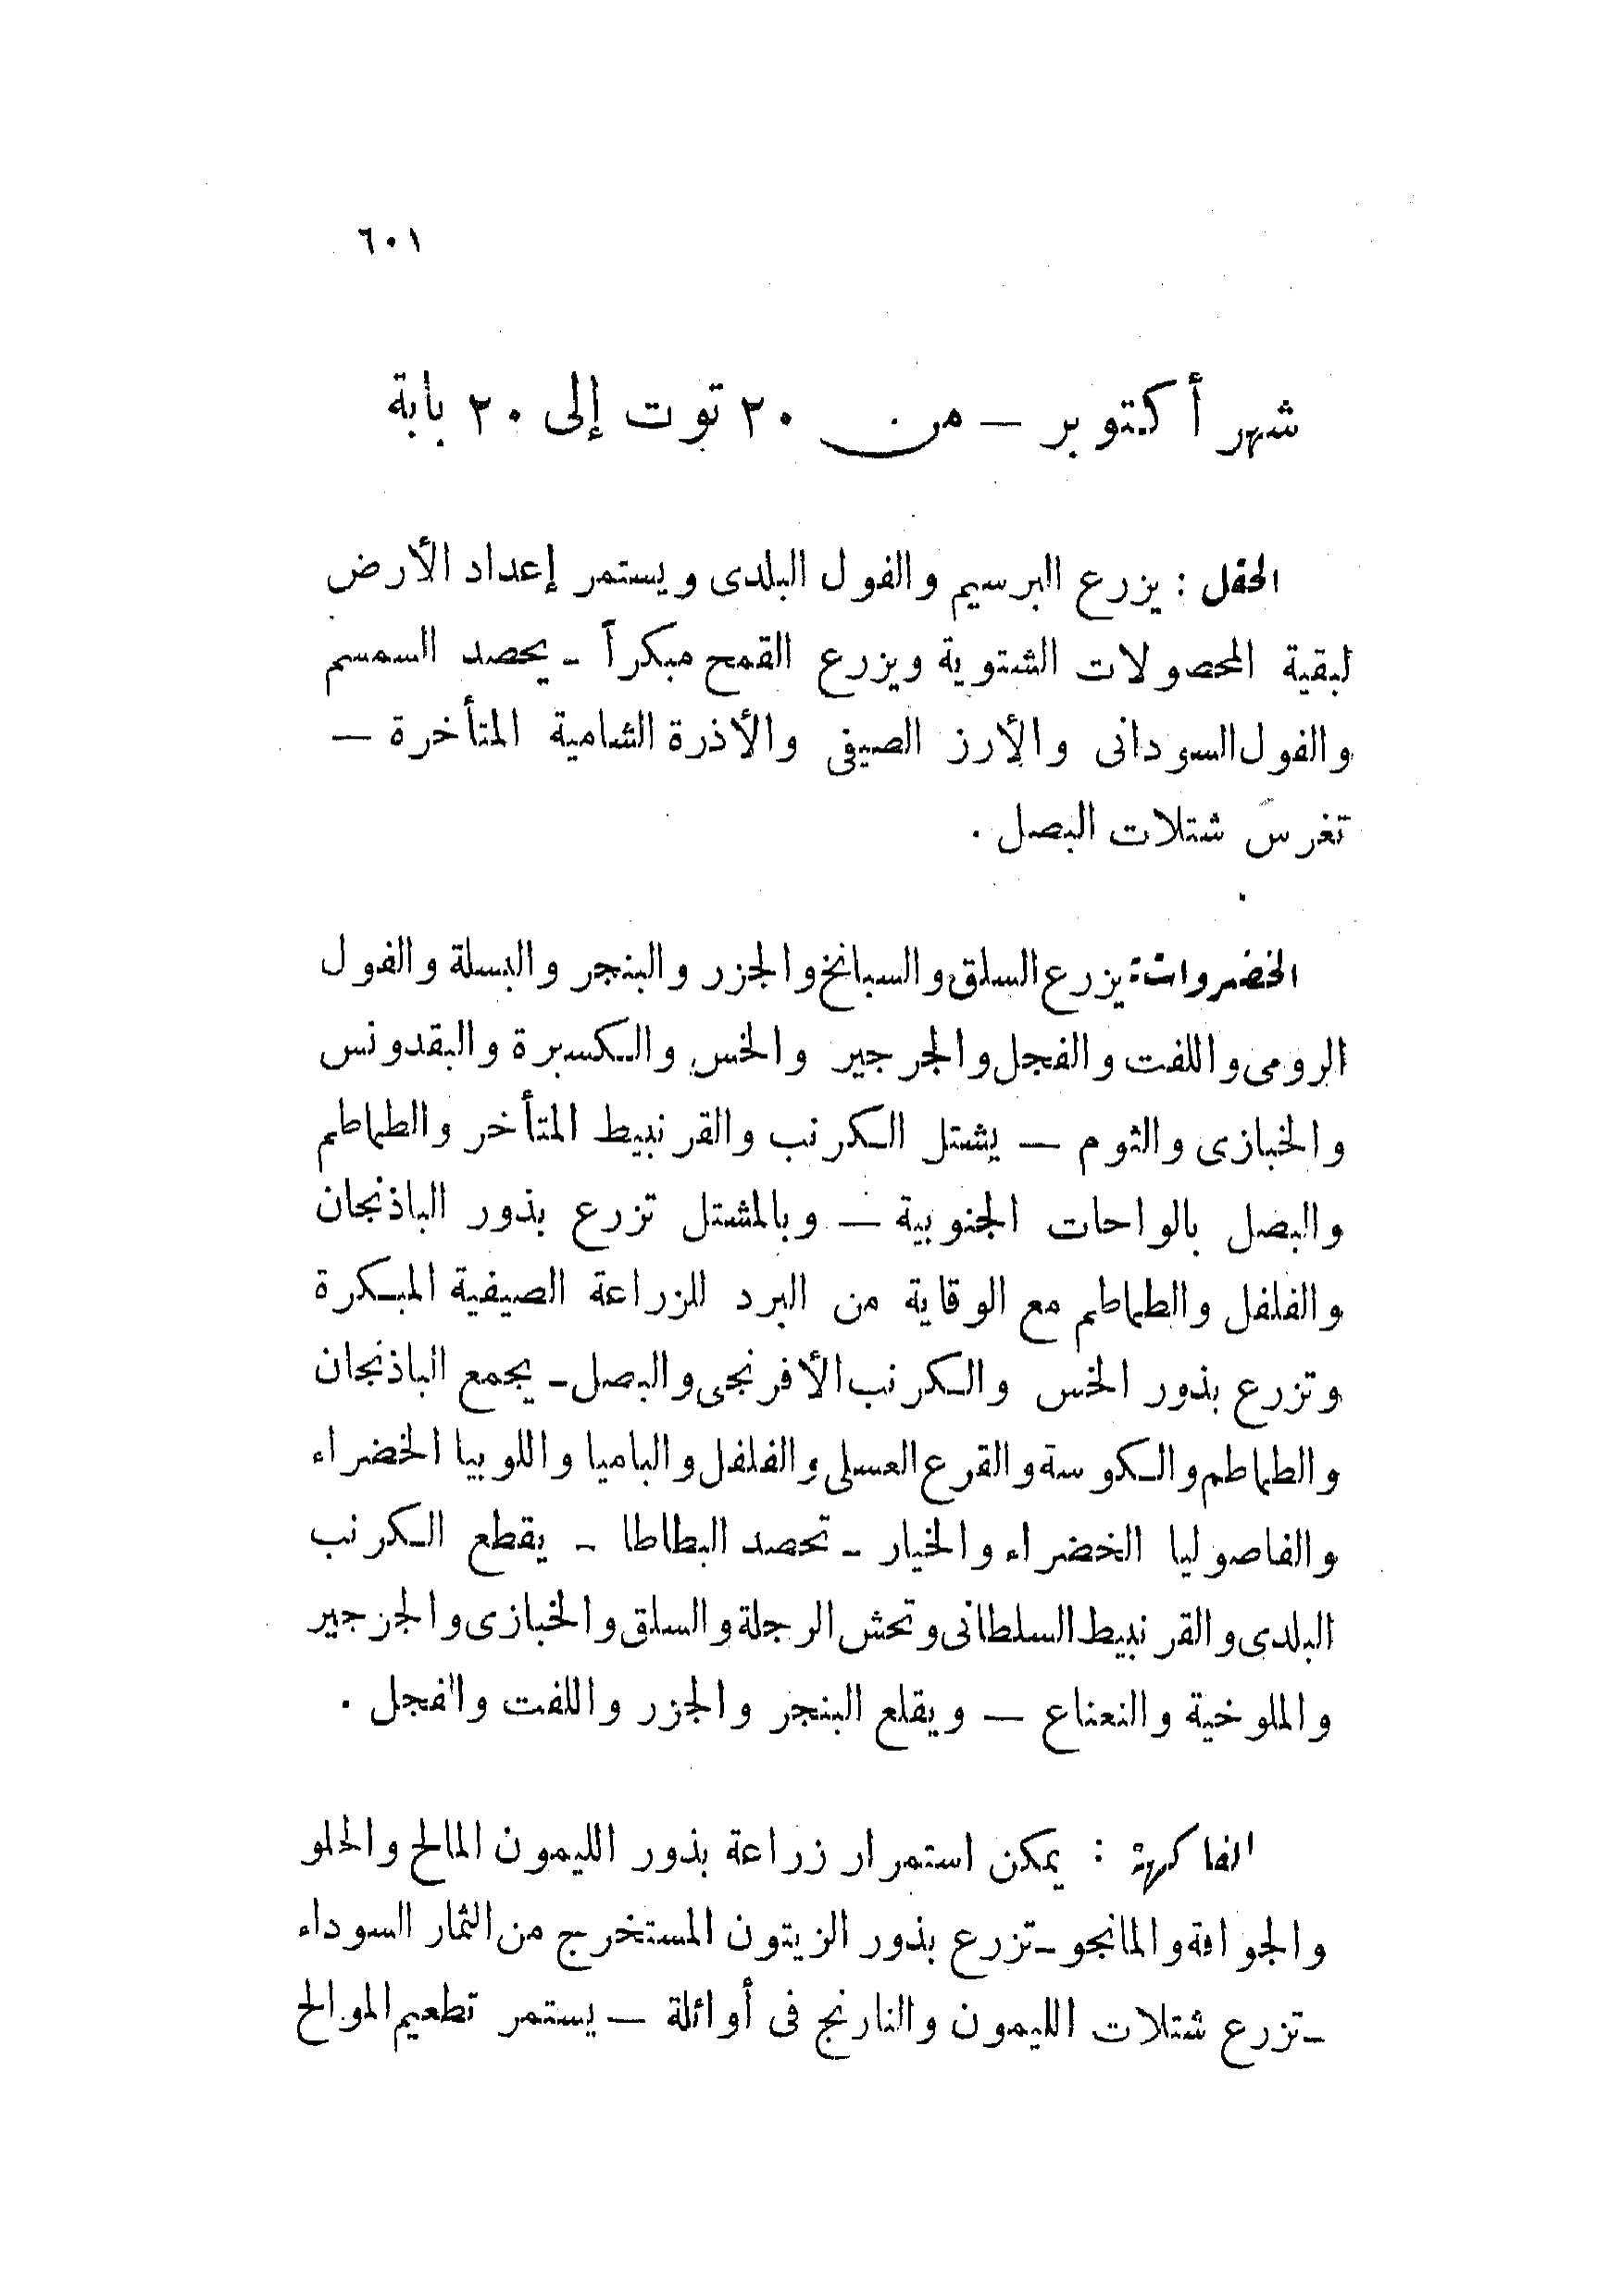 ٦٠١
شهر أكتوبر — من ٢٠ توت إلى ٢٠ بابة
الحقل : يزرع البرسيم والفول البلدى ويستمر إعداد الأرض
لبقية المحصولات الشتوية ويزرع القمح مبكراً - يحصد السمسم
والفول السودانى والأرز الصيفى والأذرة الشامية المتأخرة —
تغرس شتلات البصل .
الخضروات : يزرع السلق والسبانخ والجزر والبنجر والبسلة والفول
الرومى واللفت والفجل والجرجير والخس والكسبرة والبقدونس
والخبازى والثوم — يشتل الكرنب والقرنبيط المتأخر والطماطم
والبصل بالواحات الجنوبية — وبالمشتل تزرع بذور الباذنجان
والفلفل والطماطم مع الوقاية من البرد للزراعة الصيفية المبكرة
وتزرع بذور الخس والكرنب الأفرنجى والبصل - يجمع الباذنجان
والطماطم والكوسة والقرع العسلى والفلفل والباميا واللوبيا الخضراء
والفاصوليا الخضراء والخيار - تحصد البطاطا - يقطع الكرنب
البلدى والقرنبيط السلطانى وتحش الرجلة والسلق والخبازى والجرجير
والملوخية والنعناع — ويقلع البنجر والجزر واللفت والفجل .
الفاكهة : يمكن استمرار زراعة بذور الليمون المالح والحلو
والجوافة والمانجو - تزرع بذور الزيتون المستخرج من الثمار السوداء
- تزرع شتلات الليمون والنارنج فى أوائلة — يستمر تطعيم الموالح